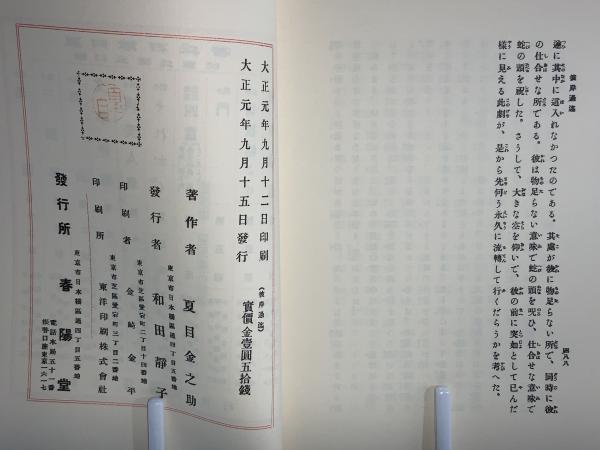 彼岸過迄
四八八
遂に其中に這入れなかつたのである。其處が彼に物足らない所で、同時に彼
の仕合せな所である。彼は物足らない意味で蛇の頭を呪ひ、仕合せな意味で
蛇の頭を祝した。さうして、大きな空を仰いで、彼の前に突如として已んだ
樣に見える此劇が、是から先何う永久に流轉して行くだらうかを考へた。
大正元年九月十二日印刷
大正元年九月十五日發行
(彼岸過迄)
實價金壹圓五拾錢
著作者 夏目金之助
東京市日本橋區通四丁目五番地
發行者 和田靜子
東京市芝區愛宕町二丁目十四番地
印刷者 金崎金平
東京市芝區愛宕町三丁目二番地
印刷所 東洋印刷株式會社
東京市日本橋區通四丁目五番地
發行所 春陽堂
電話本局五十一番
振替口座東京一六一七